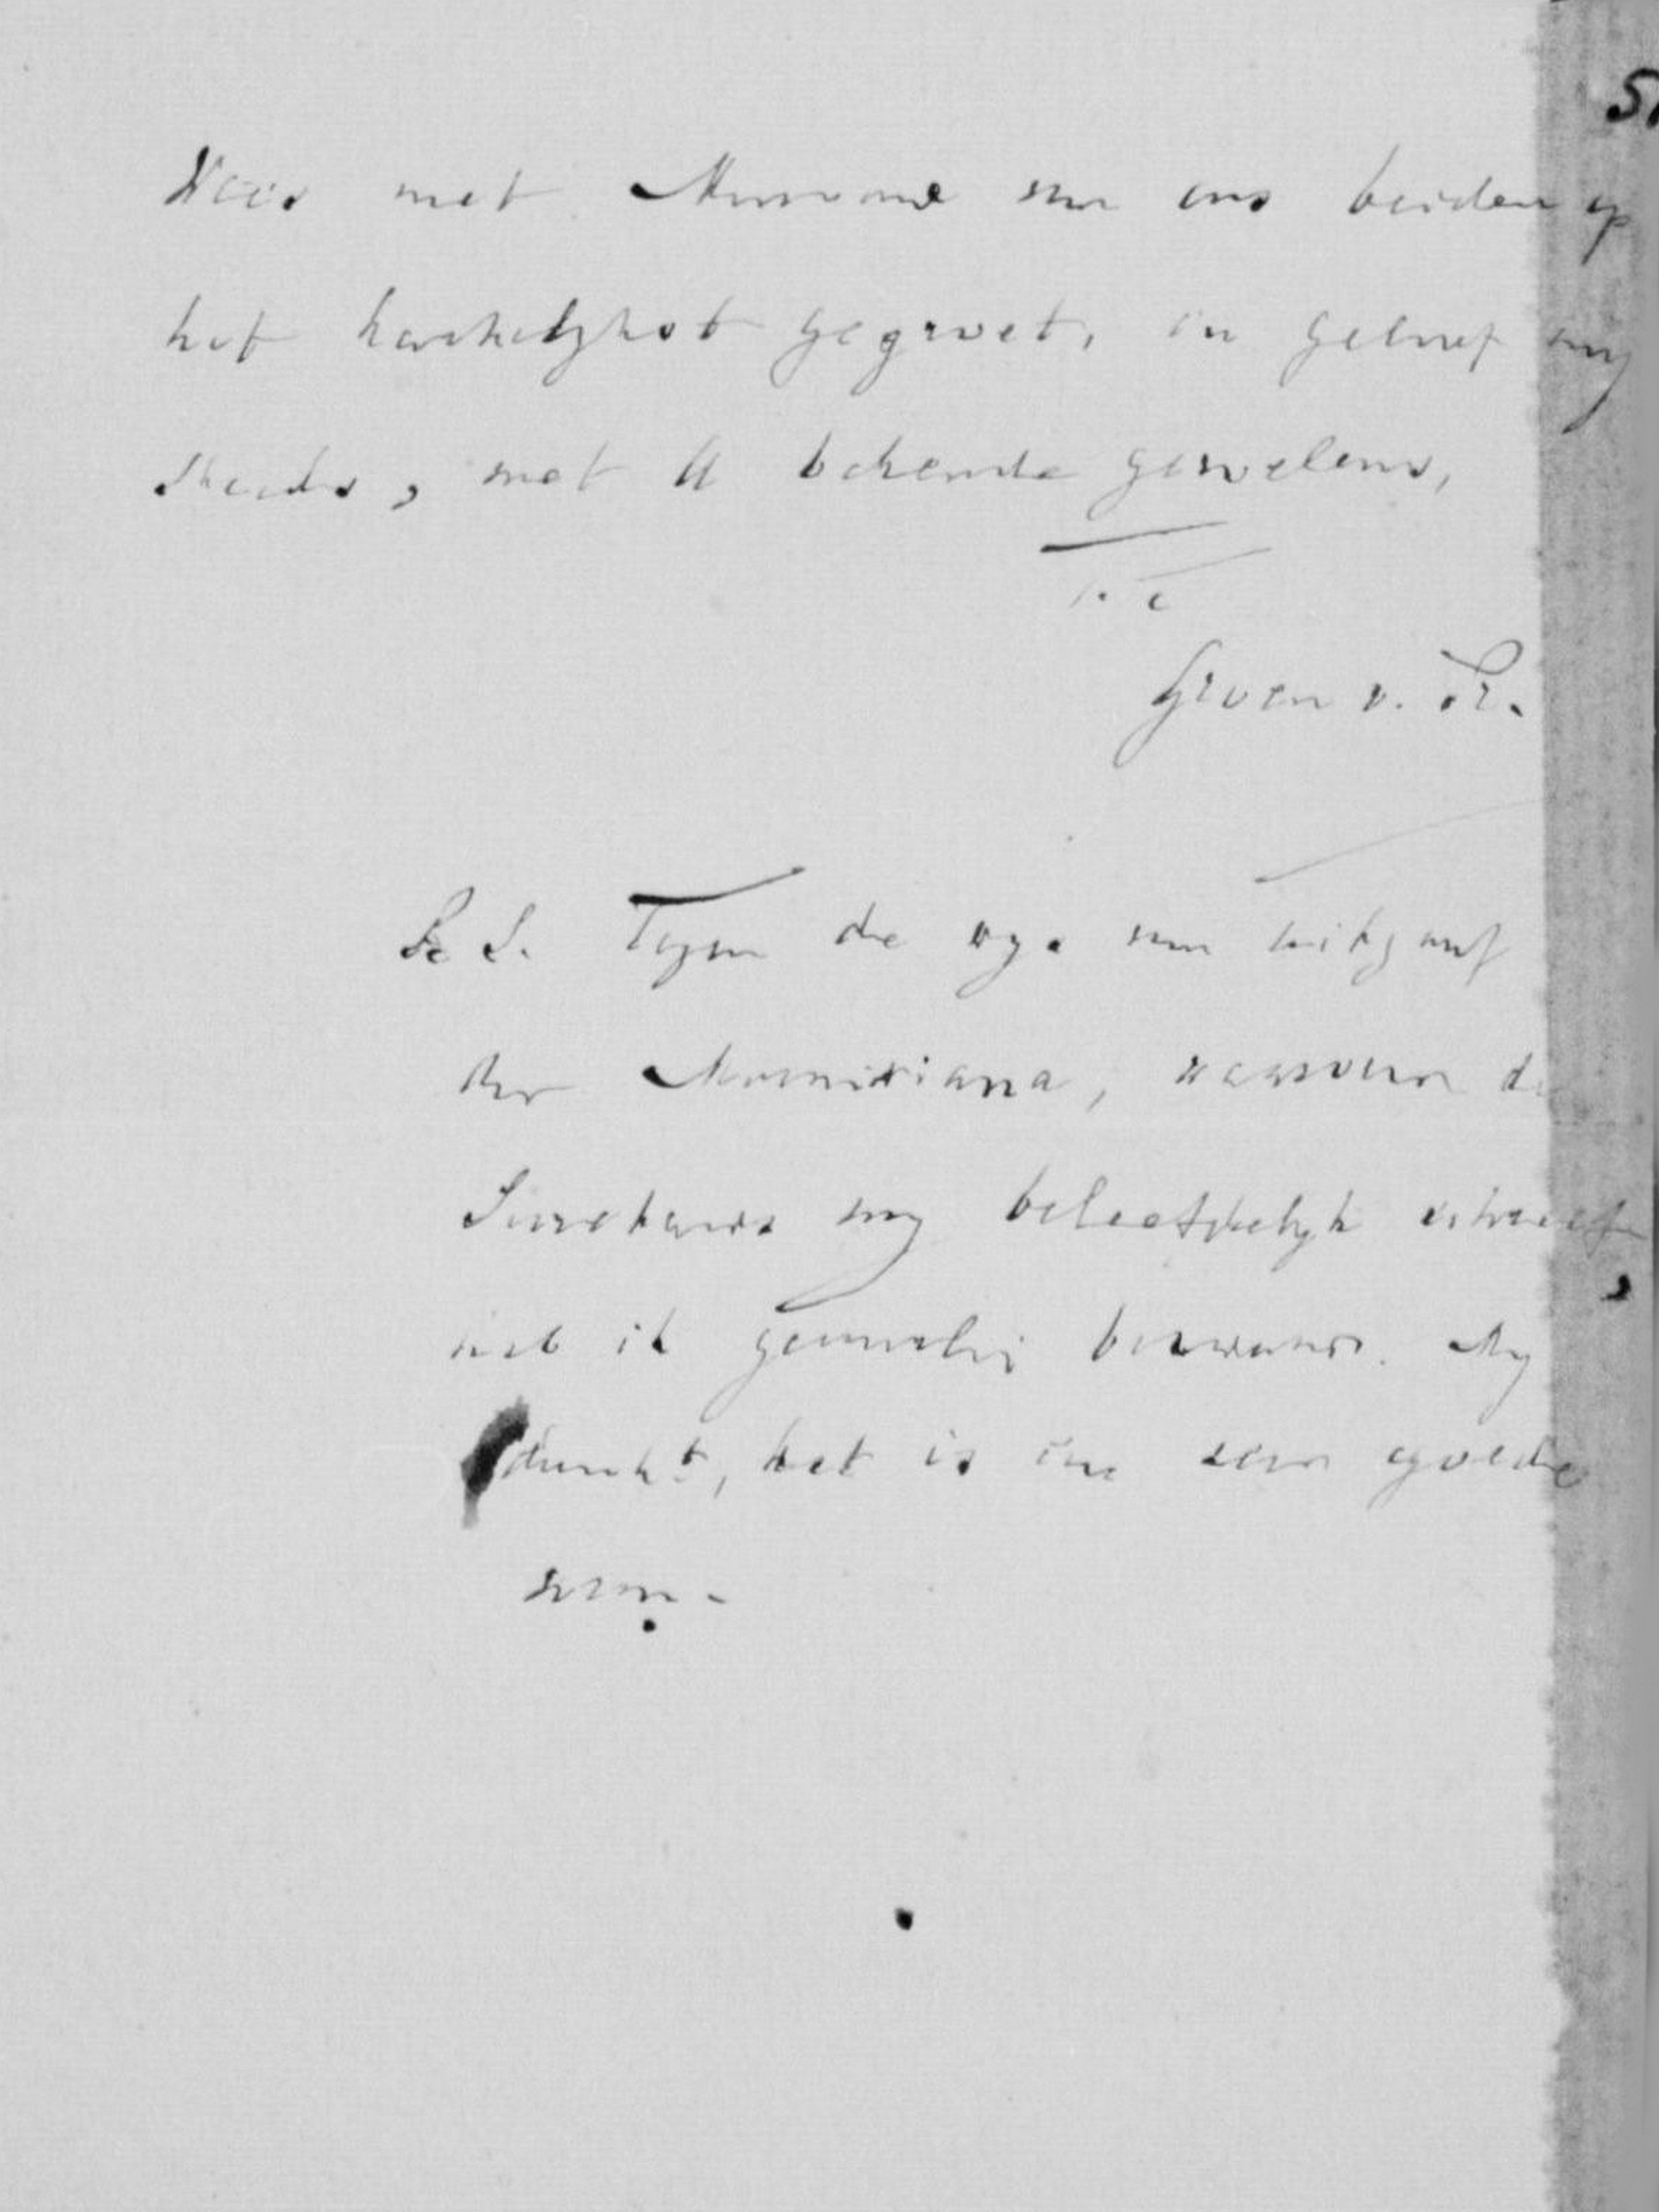 Wees met Mevrouw van ons beiden op
het hartelijkst gegroet, en geloof my
steeds, met U bekende gevoelens,
t. t.
Groen v. Pr.
P. S. Tegen de wyze van uitgaaf
der Marnixiana, waarover de
Secretaris my beleefdelyk schreef,
heb ik geenerlei bezwaar. My
dunkt, het is in een goede
vorm.